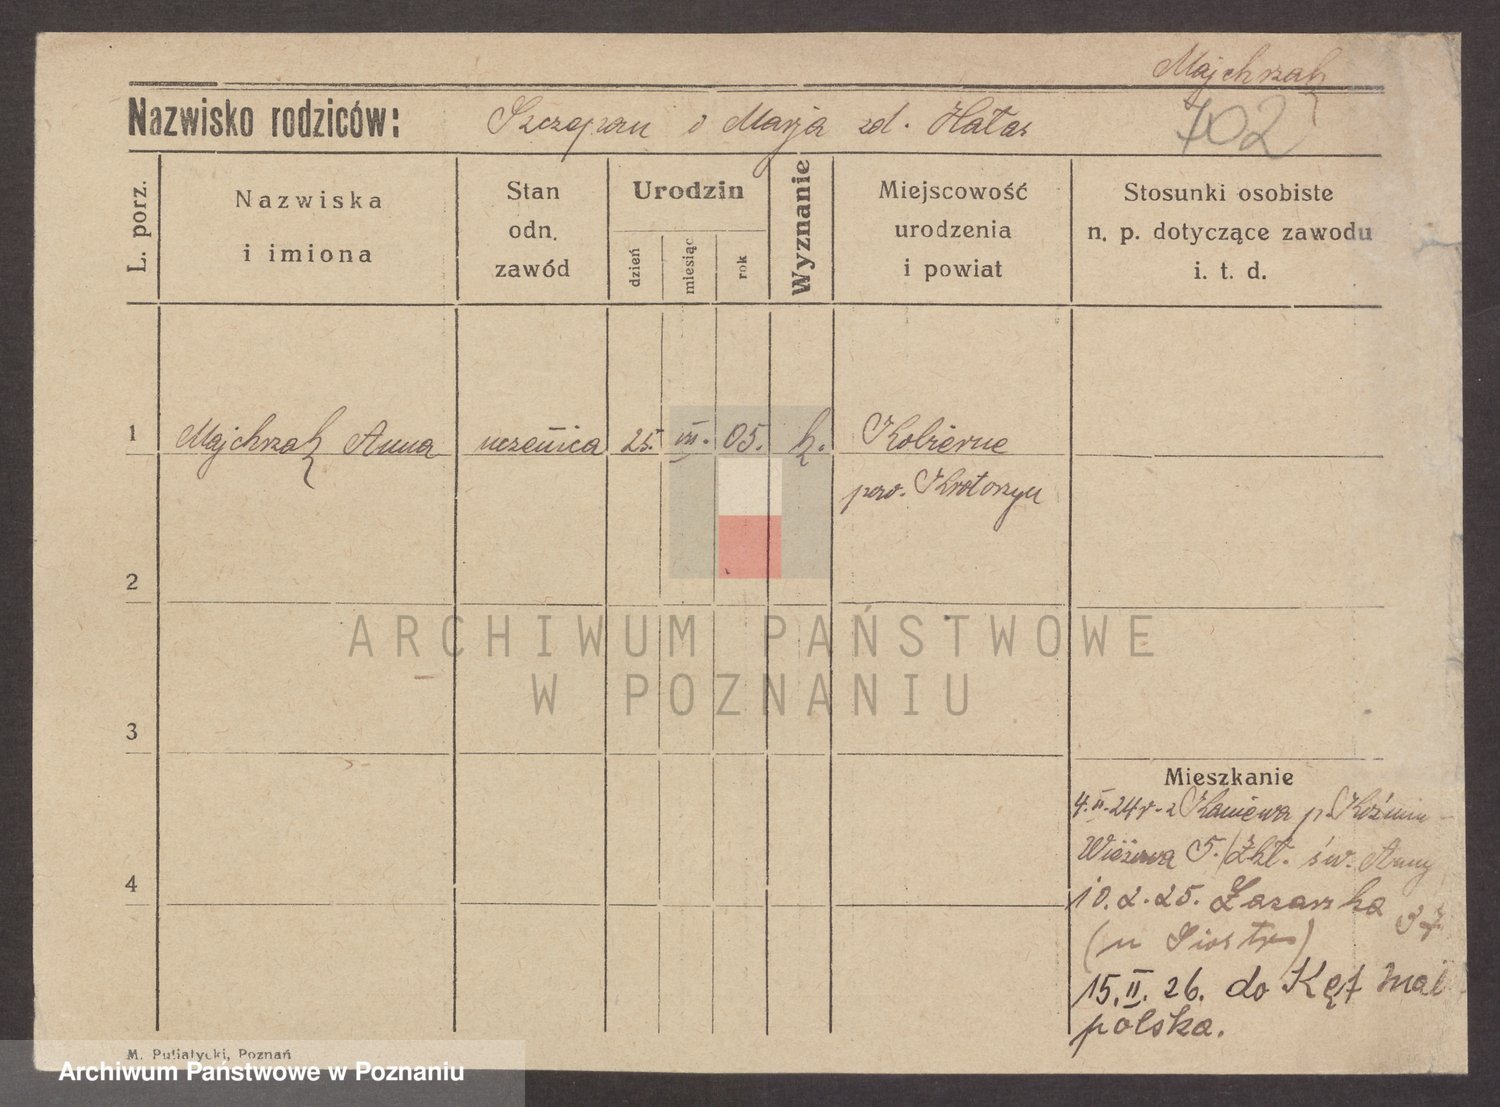 Majchrzak
Nazwisko rodziców: Szczepan i Marja zd. Hałas
702
L. porz.
Nazwiska
i imiona
Stan
odn.
zawód
Urodzin
dzień
miesiąc
rok
Wyznanie
Miejscowość
urodzenia
i powiat
Stosunki osobiste
n. p. dotyczące zawodu
i. t. d.
1 Majchrzak Anna uczenica 25. VII. 05. k. Kobierne
pow. Krotoszyn
2
ARCHIWUM PAŃSTWOWE
W POZNANIU
3
Mieszkanie
4.II.24r. z Kaniewa p. Koźmin
Wieżowa 5. / Zkł. św. Anny
4
10.2.25. Łazarska 37
(u Siostr)
15.II.26. do Kęt Mało
polska.
M. Putiatycki, Poznań
Archiwum Państwowe w Poznaniu